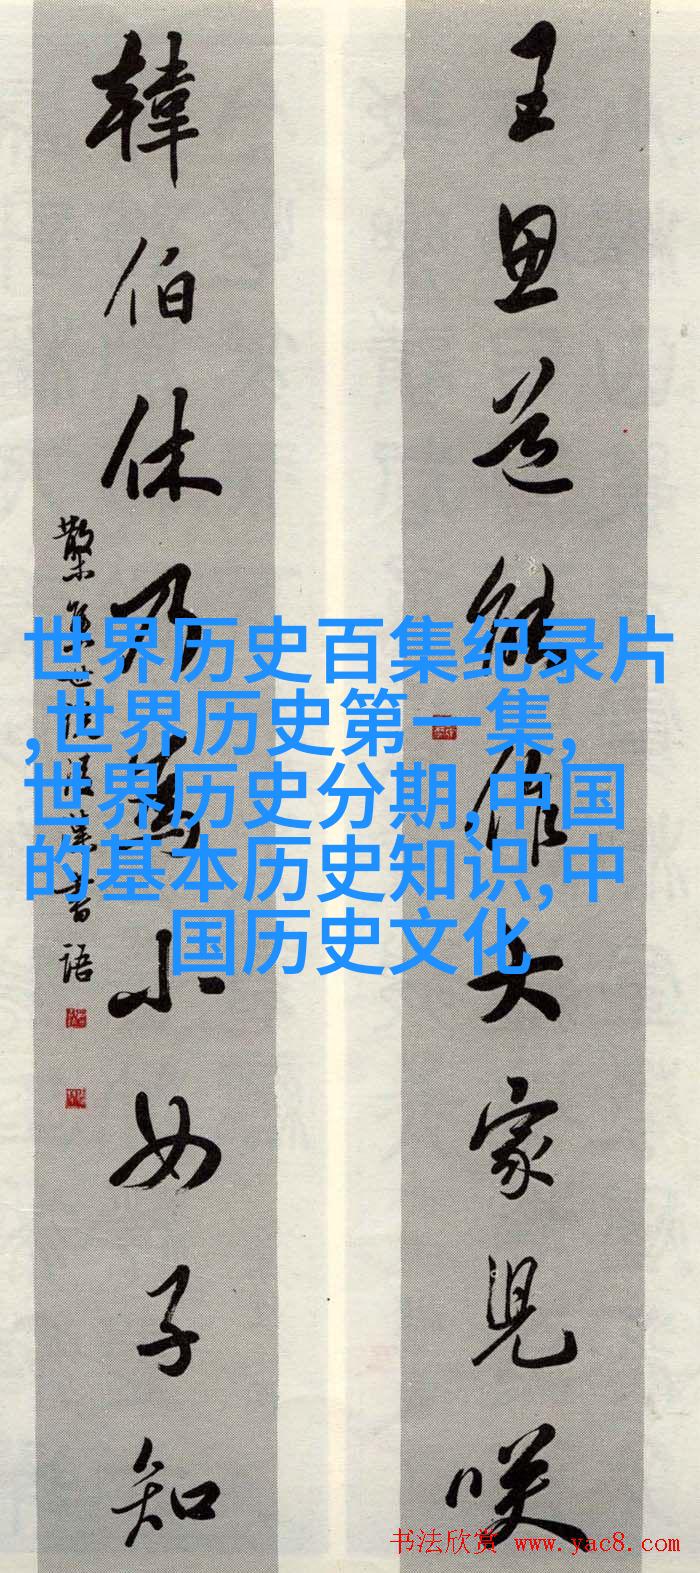 王思道能作大家兒咲
韓伯休乃為小女子知
世界历史百集纪录片
,世界历史第一集,
世界历史分期,中国
的基本历史知识,中
国历史文化
书法欣赏 www.yac8.com